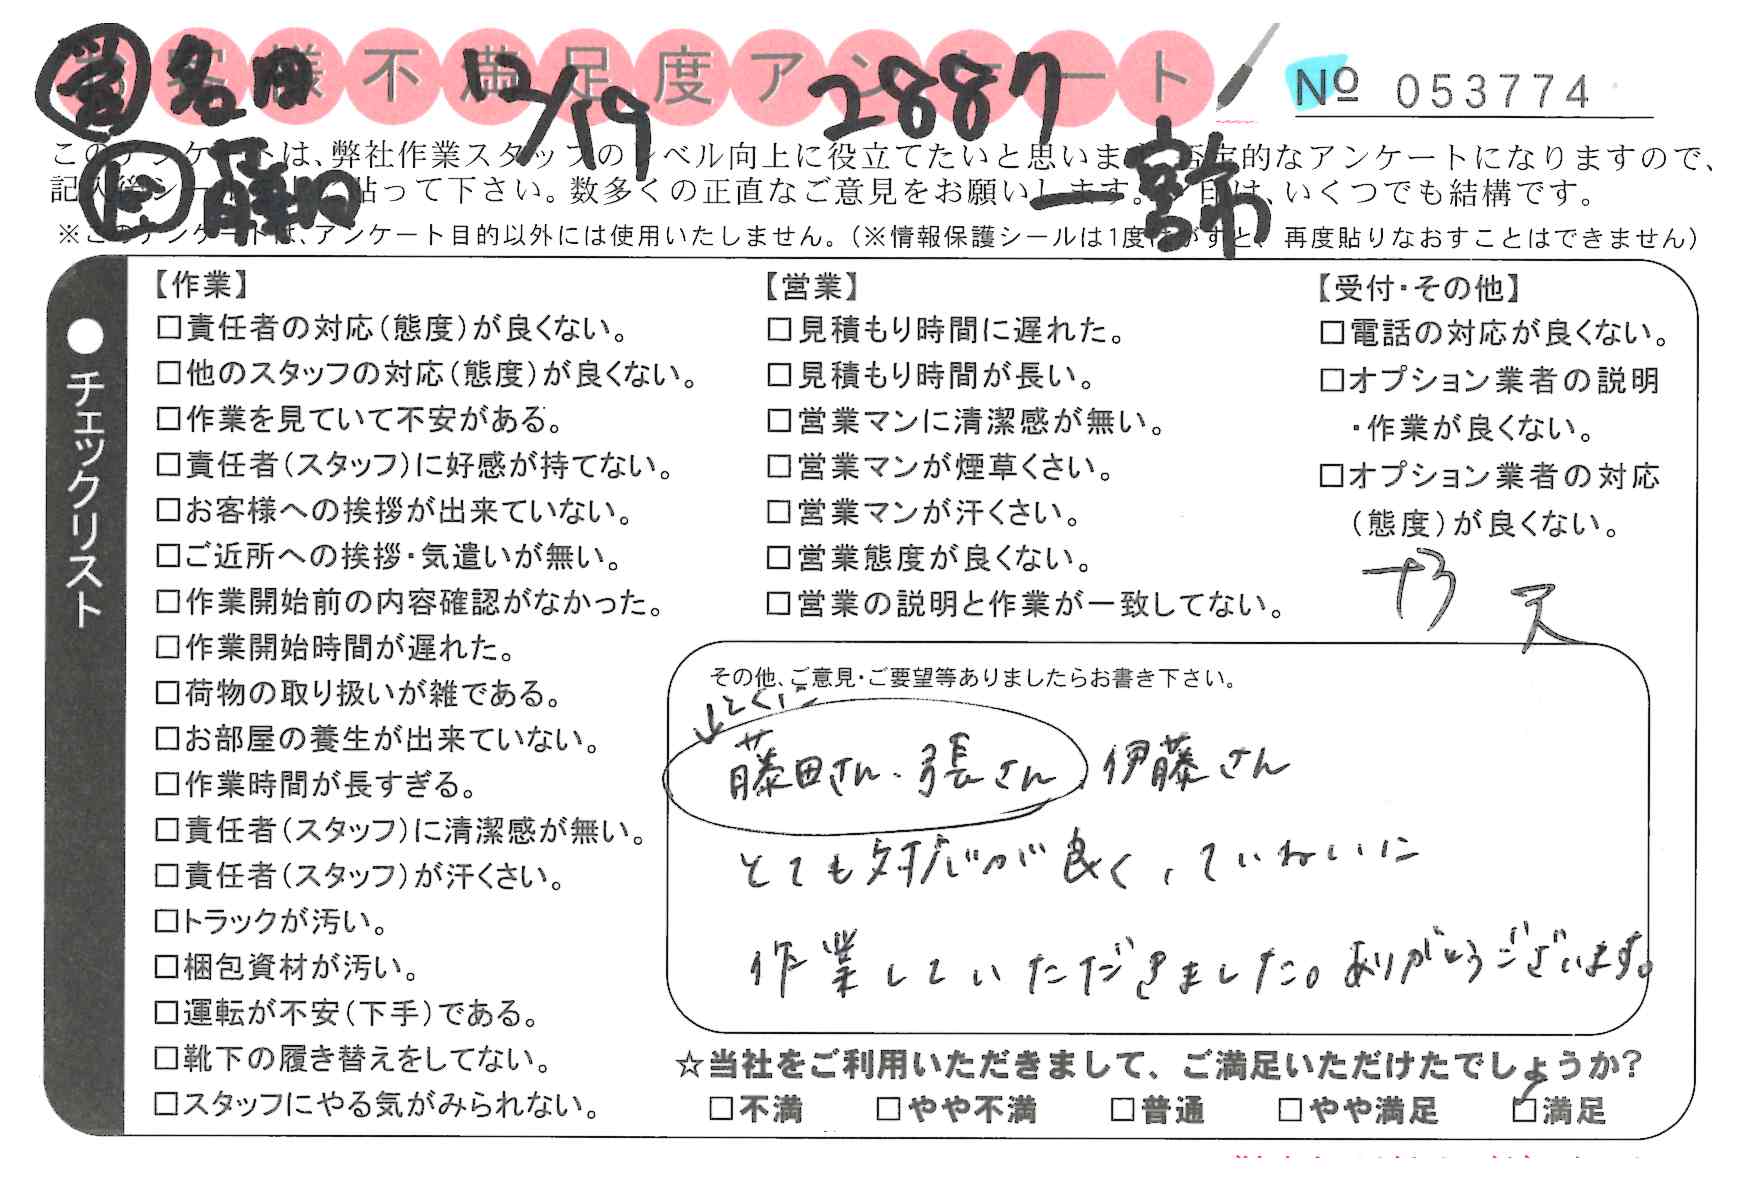 お客様不満足度アンケート
営 名田 12/19 2887
№ 053774
このアンケートは、弊社作業スタッフのレベル向上に役立てたいと思います。否定的なアンケートになりますので、
記入後シールを貼って下さい。数多くの正直なご意見をお願いします。印は、いくつでも結構です。
藤田
※このアンケートは、アンケート目的以外には使用いたしません。（※情報保護シールは1度はがすと、再度貼りなおすことはできません）
●チェックリスト
【作業】
□責任者の対応（態度）が良くない。
□他のスタッフの対応（態度）が良くない。
□作業を見ていて不安がある。
□責任者（スタッフ）に好感が持てない。
□お客様への挨拶が出来ていない。
□ご近所への挨拶・気遣いが無い。
□作業開始前の内容確認がなかった。
□作業開始時間が遅れた。
□荷物の取り扱いが雑である。
□お部屋の養生が出来ていない。
□作業時間が長すぎる。
□責任者（スタッフ）に清潔感が無い。
□責任者（スタッフ）が汗くさい。
□トラックが汚い。
□梱包資材が汚い。
□運転が不安（下手）である。
□靴下の履き替えをしてない。
□スタッフにやる気がみられない。
【営業】
□見積もり時間に遅れた。
□見積もり時間が長い。
□営業マンに清潔感が無い。
□営業マンが煙草くさい。
□営業マンが汗くさい。
□営業態度が良くない。
□営業の説明と作業が一致してない。
【受付・その他】
□電話の対応が良くない。
□オプション業者の説明
・作業が良くない。
□オプション業者の対応
（態度）が良くない。
その他、ご意見・ご要望等ありましたらお書き下さい。
↓とくに
藤田さん・張さん、伊藤さん
とても対応が良く、ていねいに
作業していただきました。ありがとうございます。
☆当社をご利用いただきまして、ご満足いただけたでしょうか?
□不満 □やや不満 □普通 □やや満足 □満足